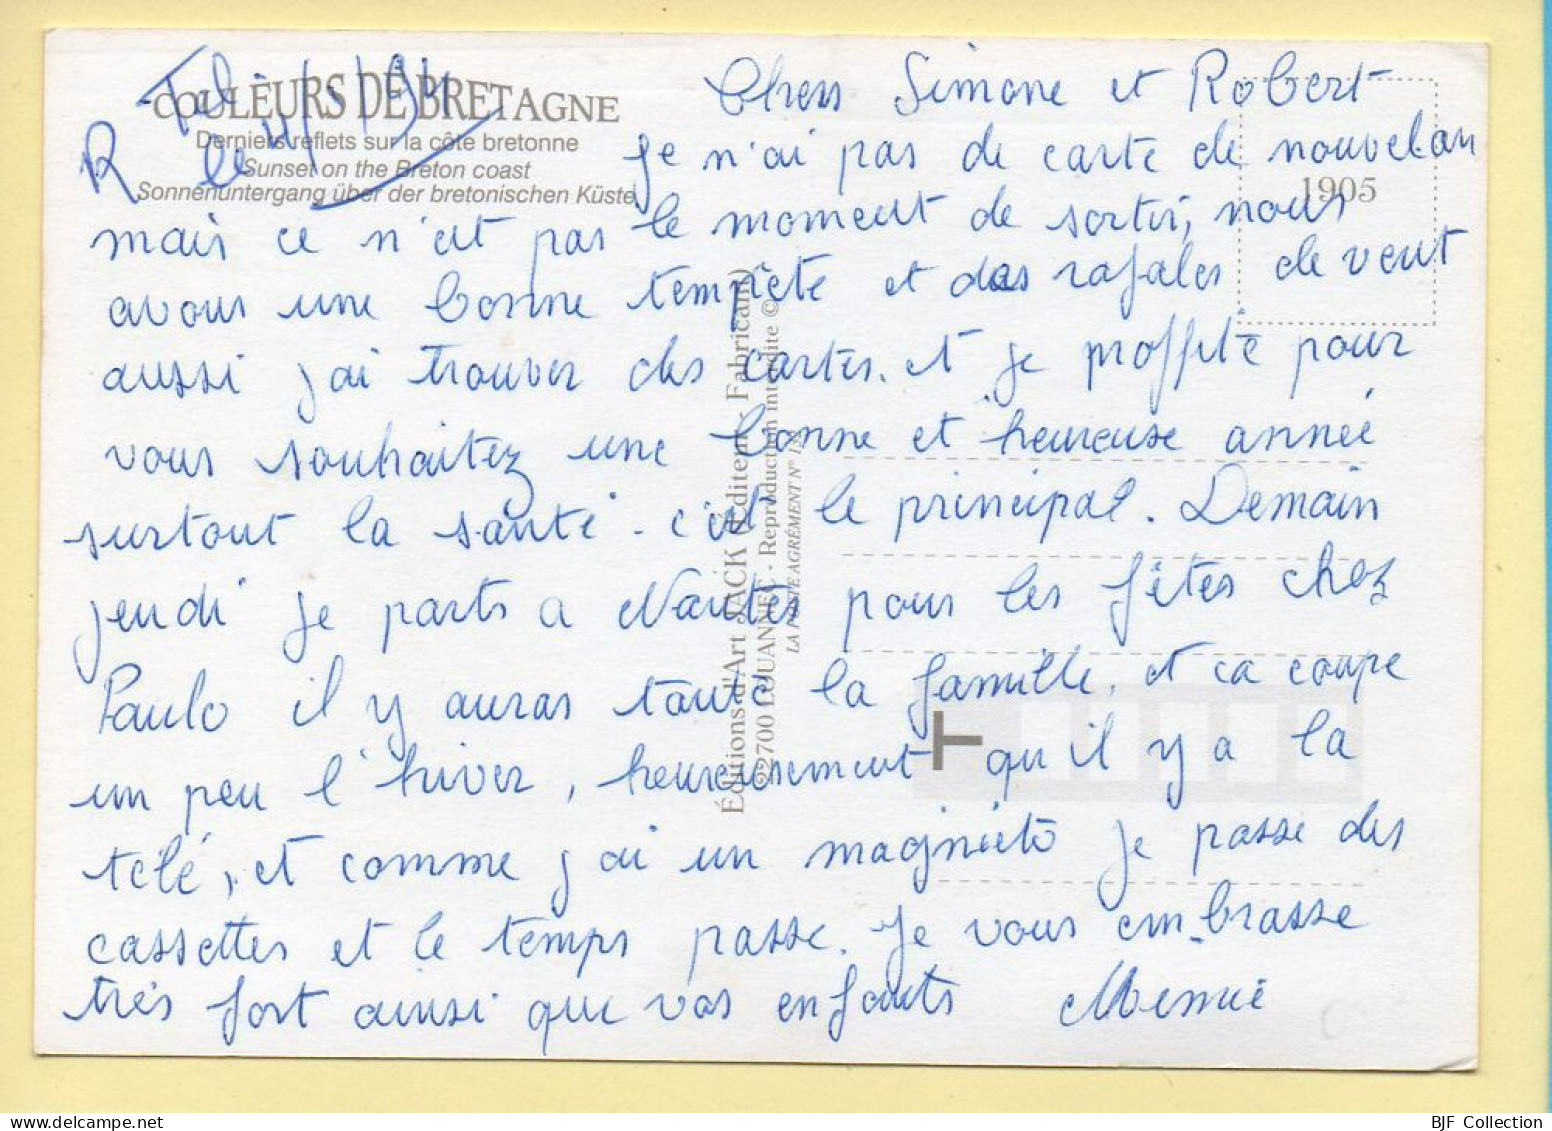 COULEURS DE BRETAGNE
Derniers reflets sur la côte bretonne
Sunset on the Breton coast
Sonnenuntergang über der bretonischen Küste
R
le 4/1/94
1905
Chers Simone et Robert
Je n'ai pas de carte de nouvel an
mais ce n'est pas le moment de sortir, nous
avons une bonne tempête et des rafales de vent
aussi j'ai trouver des cartes. et je proffite pour
vous souhaitez une bonne et heureuse année
surtout la santé. c'est le principal. Demain
jeudi je parts a Nantes pour les fêtes chez
Paulo il y auras toute la famille. et ca coupe
un peu l'hiver, heureusement qu'il y a la
télé, et comme j'ai un magnieto je passe des
cassettes et le temps passe. Je vous em.brasse
très fort ainsi que vos enfants Memie
Éditions d'Art JACK (Éditeur - Fabricant)
22700 LOUANNEC - Reproduction interdite ©
LA POSTE AGRÉMENT N°
T
BJF Collection